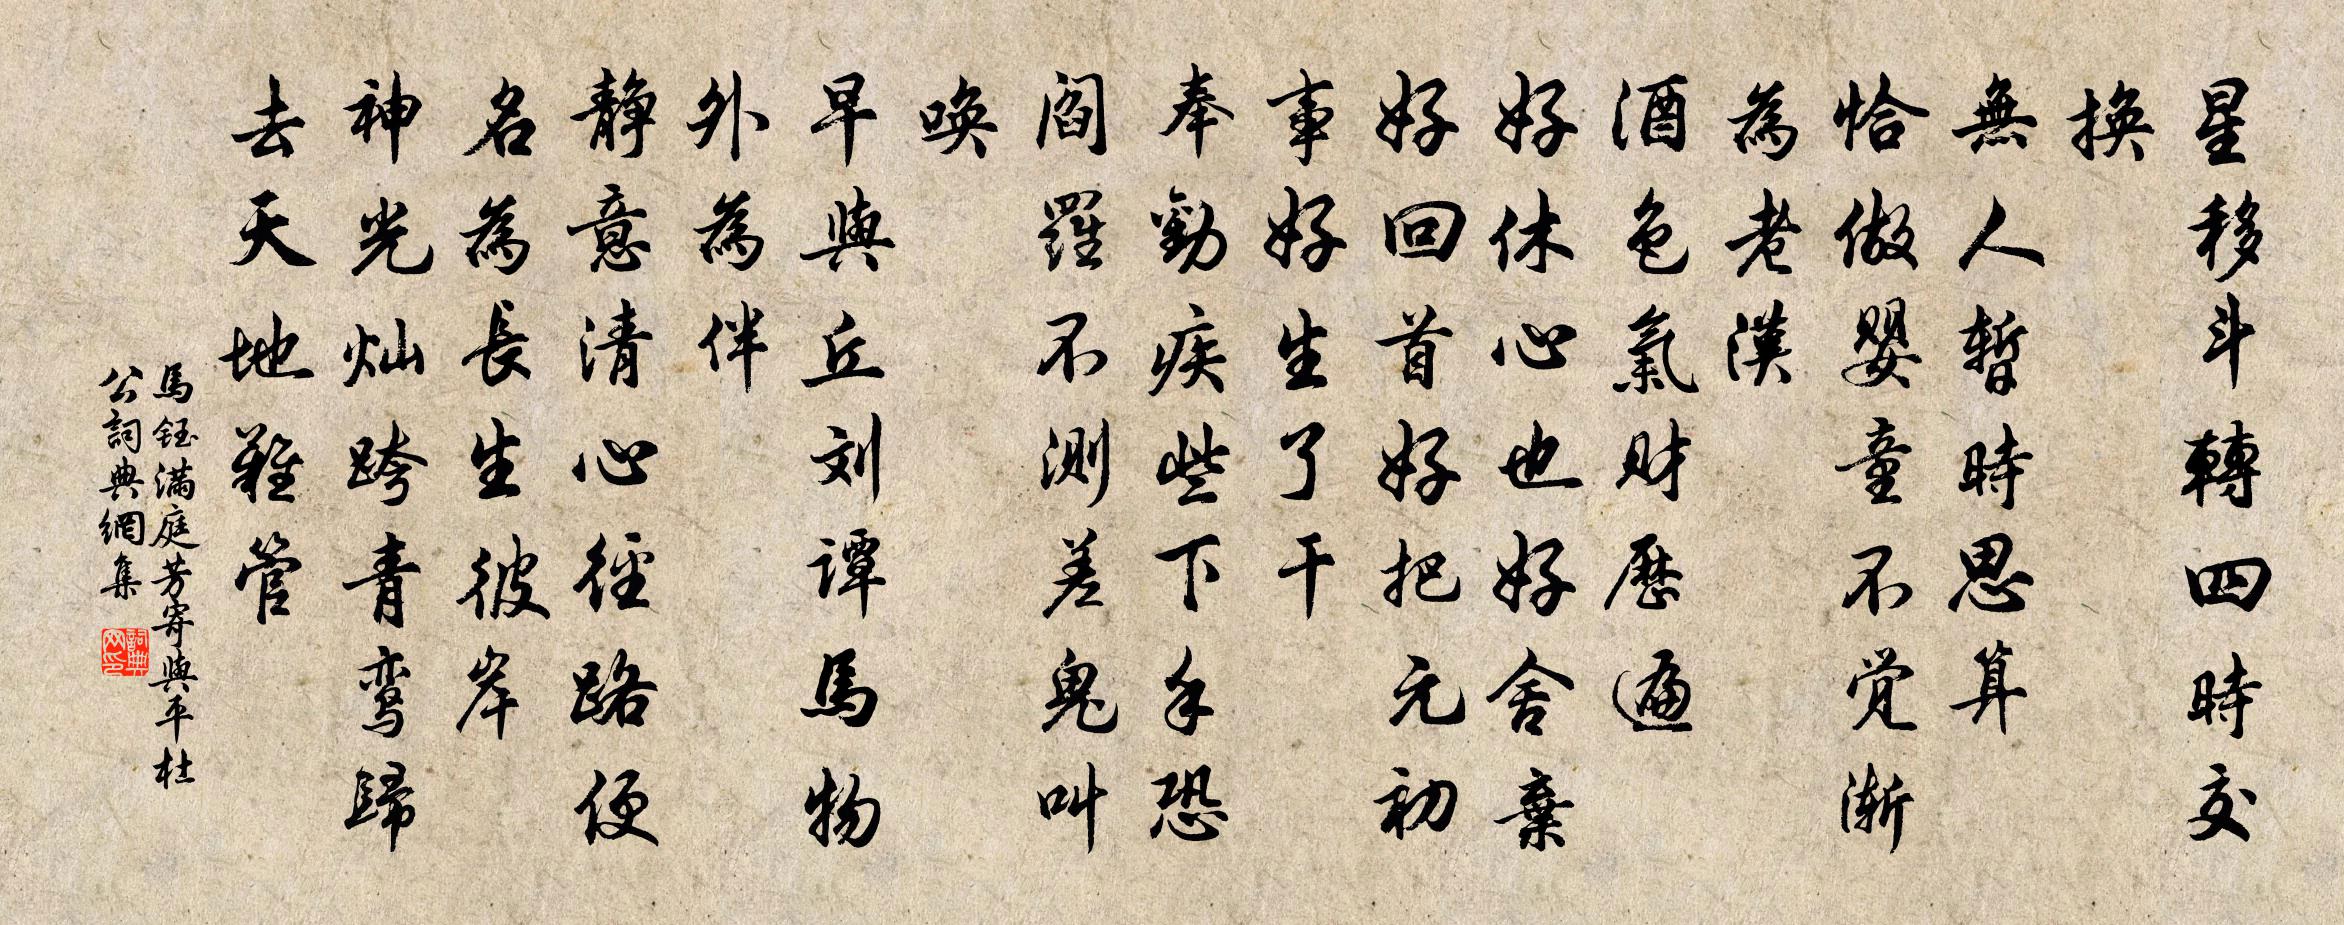 星移斗轉四時交
換
無人暫時思算
恰做嬰童不觉漸
為老漢
酒色氣财歷遍
好休心也好舍棄
好回首好把元初
事好生了干
奉勸疾些下手恐
閻羅不測差鬼叫
喚
早與丘刘谭馬物
外為伴
静意清心徑路便
名為長生彼岸
神光灿跨青鸾歸
去天地難管
馬鈺滿庭芳寄興平杜
公詞典網集
詞典网印